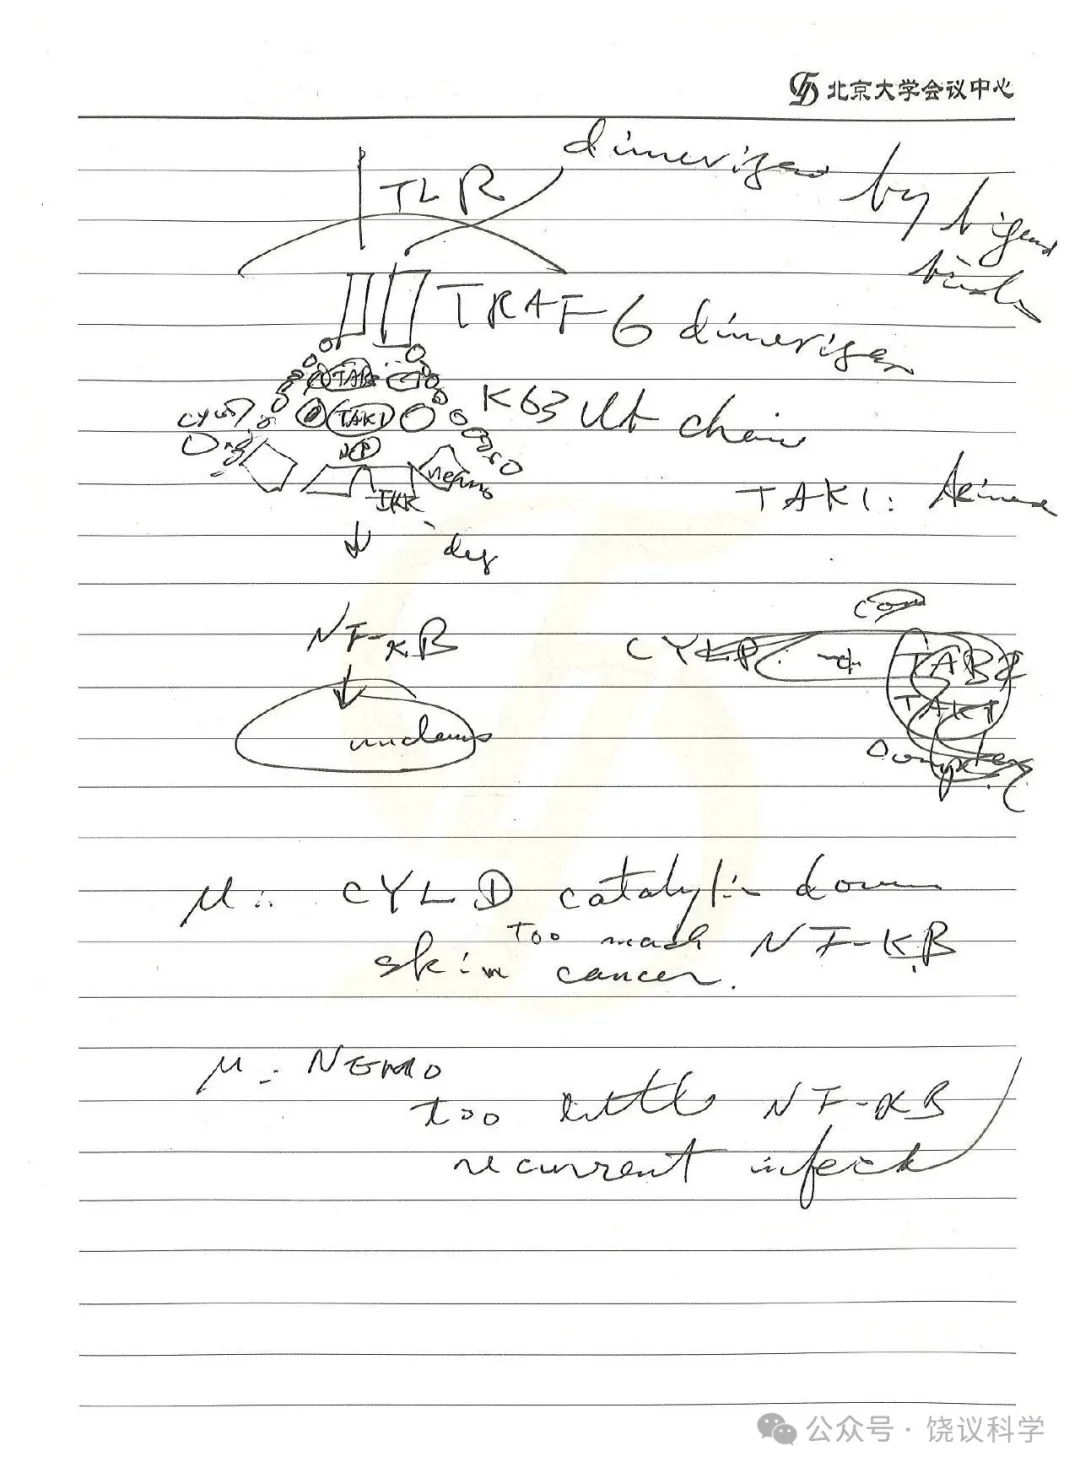 北京大学会议中心
TLR
dimerizan by ligand
TRAF6 dimerizan
TAB
TAK1
K63 Ub chain
IKK
nemo
TAK1: kinase
deg
NF-κB
nucleus
TAB2
TAK1
μ: CYLD catalytic down
too much NF-κB
skin cancer.
μ: NEMO
too little NF-κB
recurrent infect
公众号·饶议科学